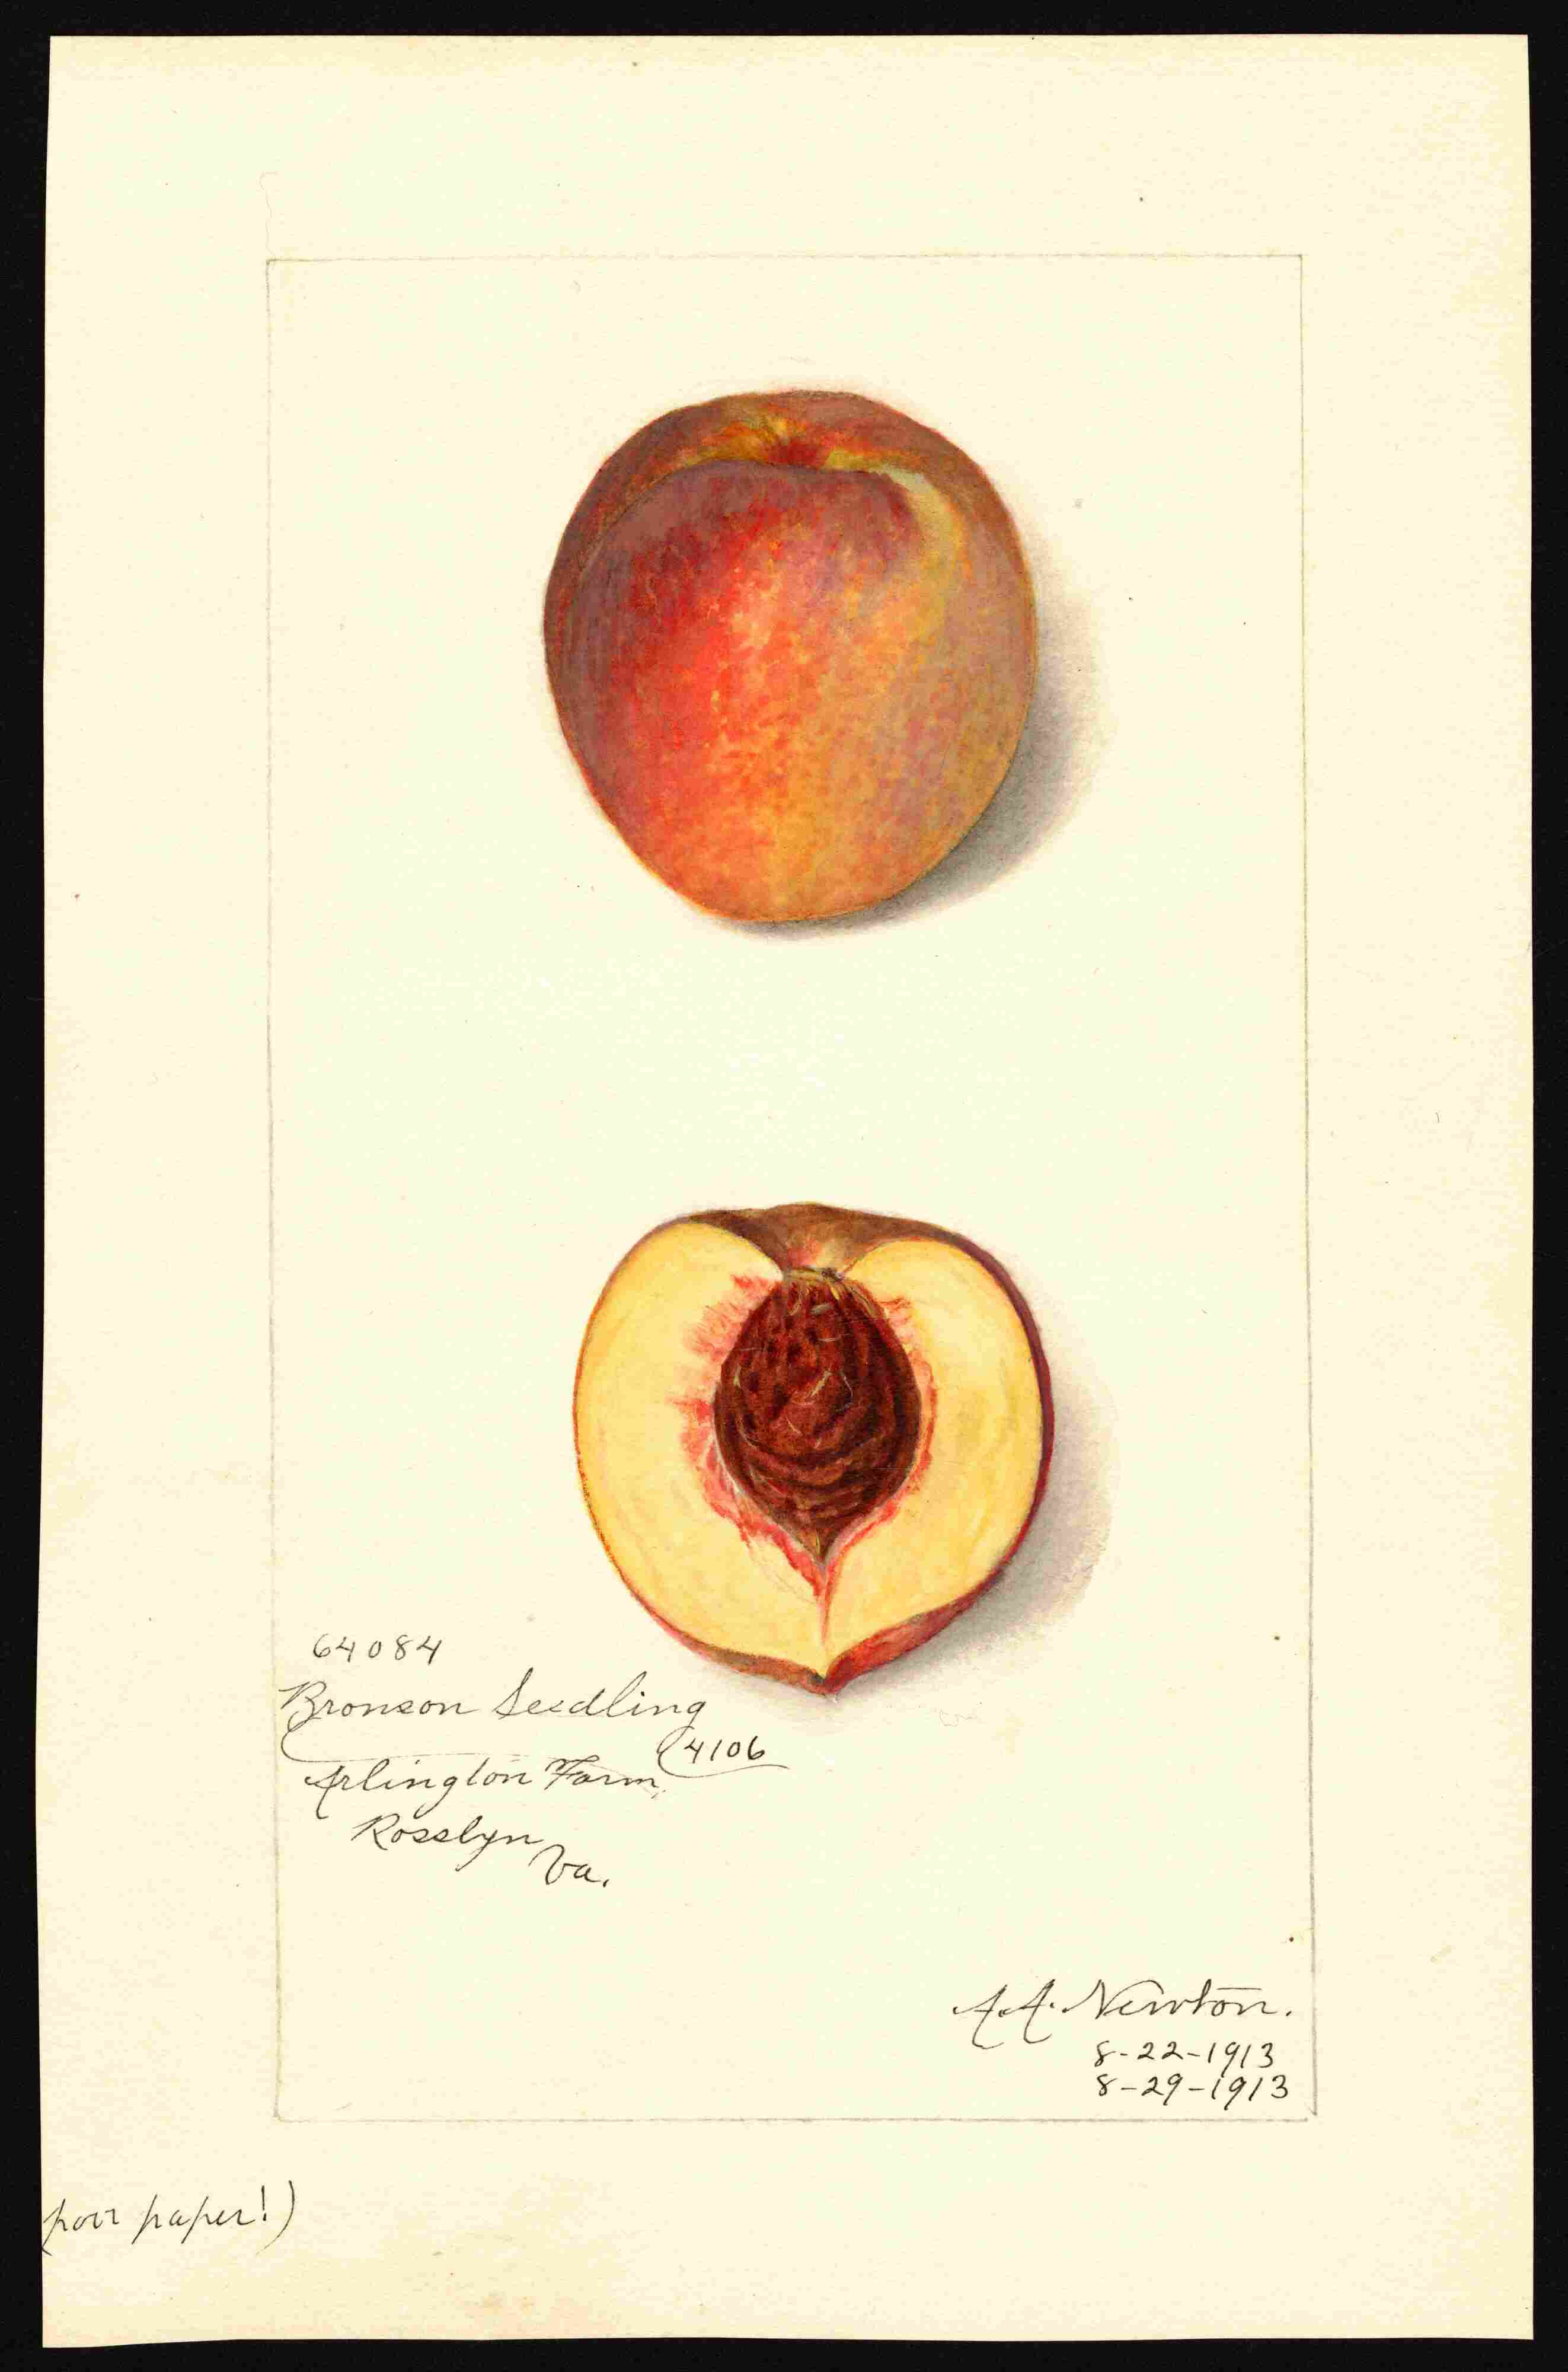 64084
Bronson Seedling
(4106
Arlington Farm,
Rosslyn
Va.
A.A. Newton.
8-22-1913
8-29-1913
poor paper!)